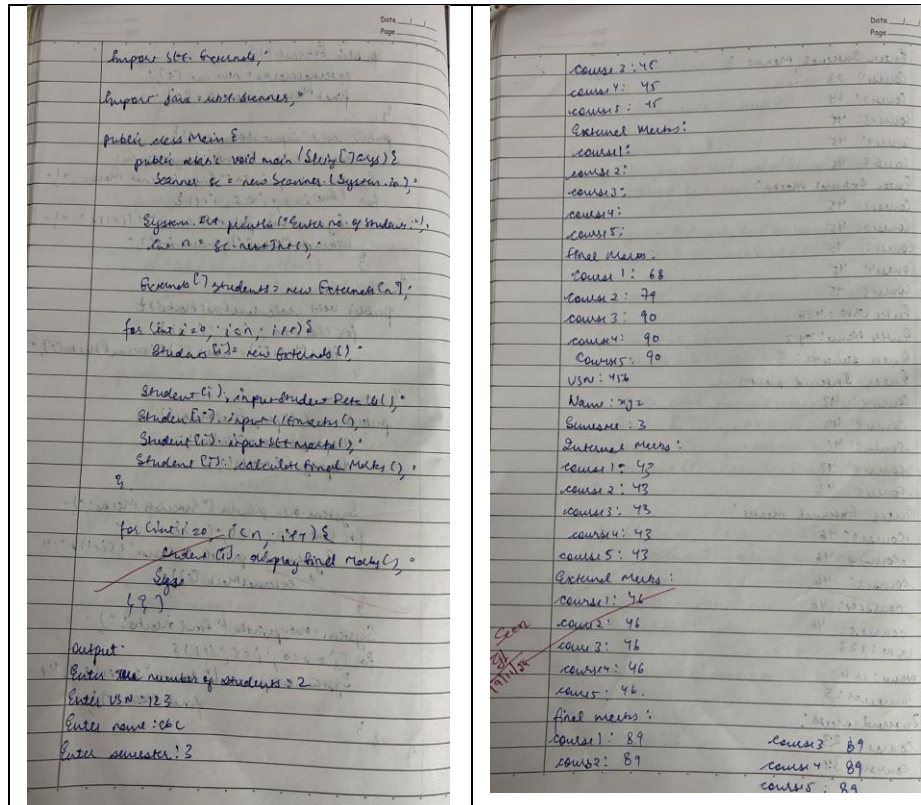 Date
Page
import SEE. Externals;
import java. util. Scanner;
public class Main {
public static void main (String [] args) {
Scanner sc = new Scanner. (System. in);
System. out. println ("Enter no. of students: ");
int n = sc. nextInt ();
Externals [] students = new Externals [n];
for (int i = 0; i < n; i++) {
Students [i] = new Externals ();
Student [i]. inputStudent Details ();
Student [i]. input CIEmarks ();
Student [i]. input SEEmarks ();
Student [i]. calculate Final Marks ();
}
for (int i = 0; i < n; i++) {
student [i]. display final Marks ();
}
}
}
output:
Enter the number of students : 2
Enter USN : 123
Enter name : abc
Enter semester : 3
Date
Page
course 3 : 45
course 4 : 45
course 5 : 45
External Marks :
course 1 :
course 2 :
course 3 :
course 4 :
course 5 :
final Marks :
course 1 : 68
course 2 : 79
course 3 : 90
course 4 : 90
course 5 : 90
USN : 456
Name : xyz
Semester : 3
Internal Marks :
course 1 : 43
course 2 : 43
course 3 : 43
course 4 : 43
course 5 : 43
External Marks :
course 1 : 46
course 2 : 46
course 3 : 46
course 4 : 46
course 5 : 46.
Seen
19/11/24
final marks :
course 1 : 89
course 2 : 89
course 3 : 89
course 4 : 89
course 5 : 89